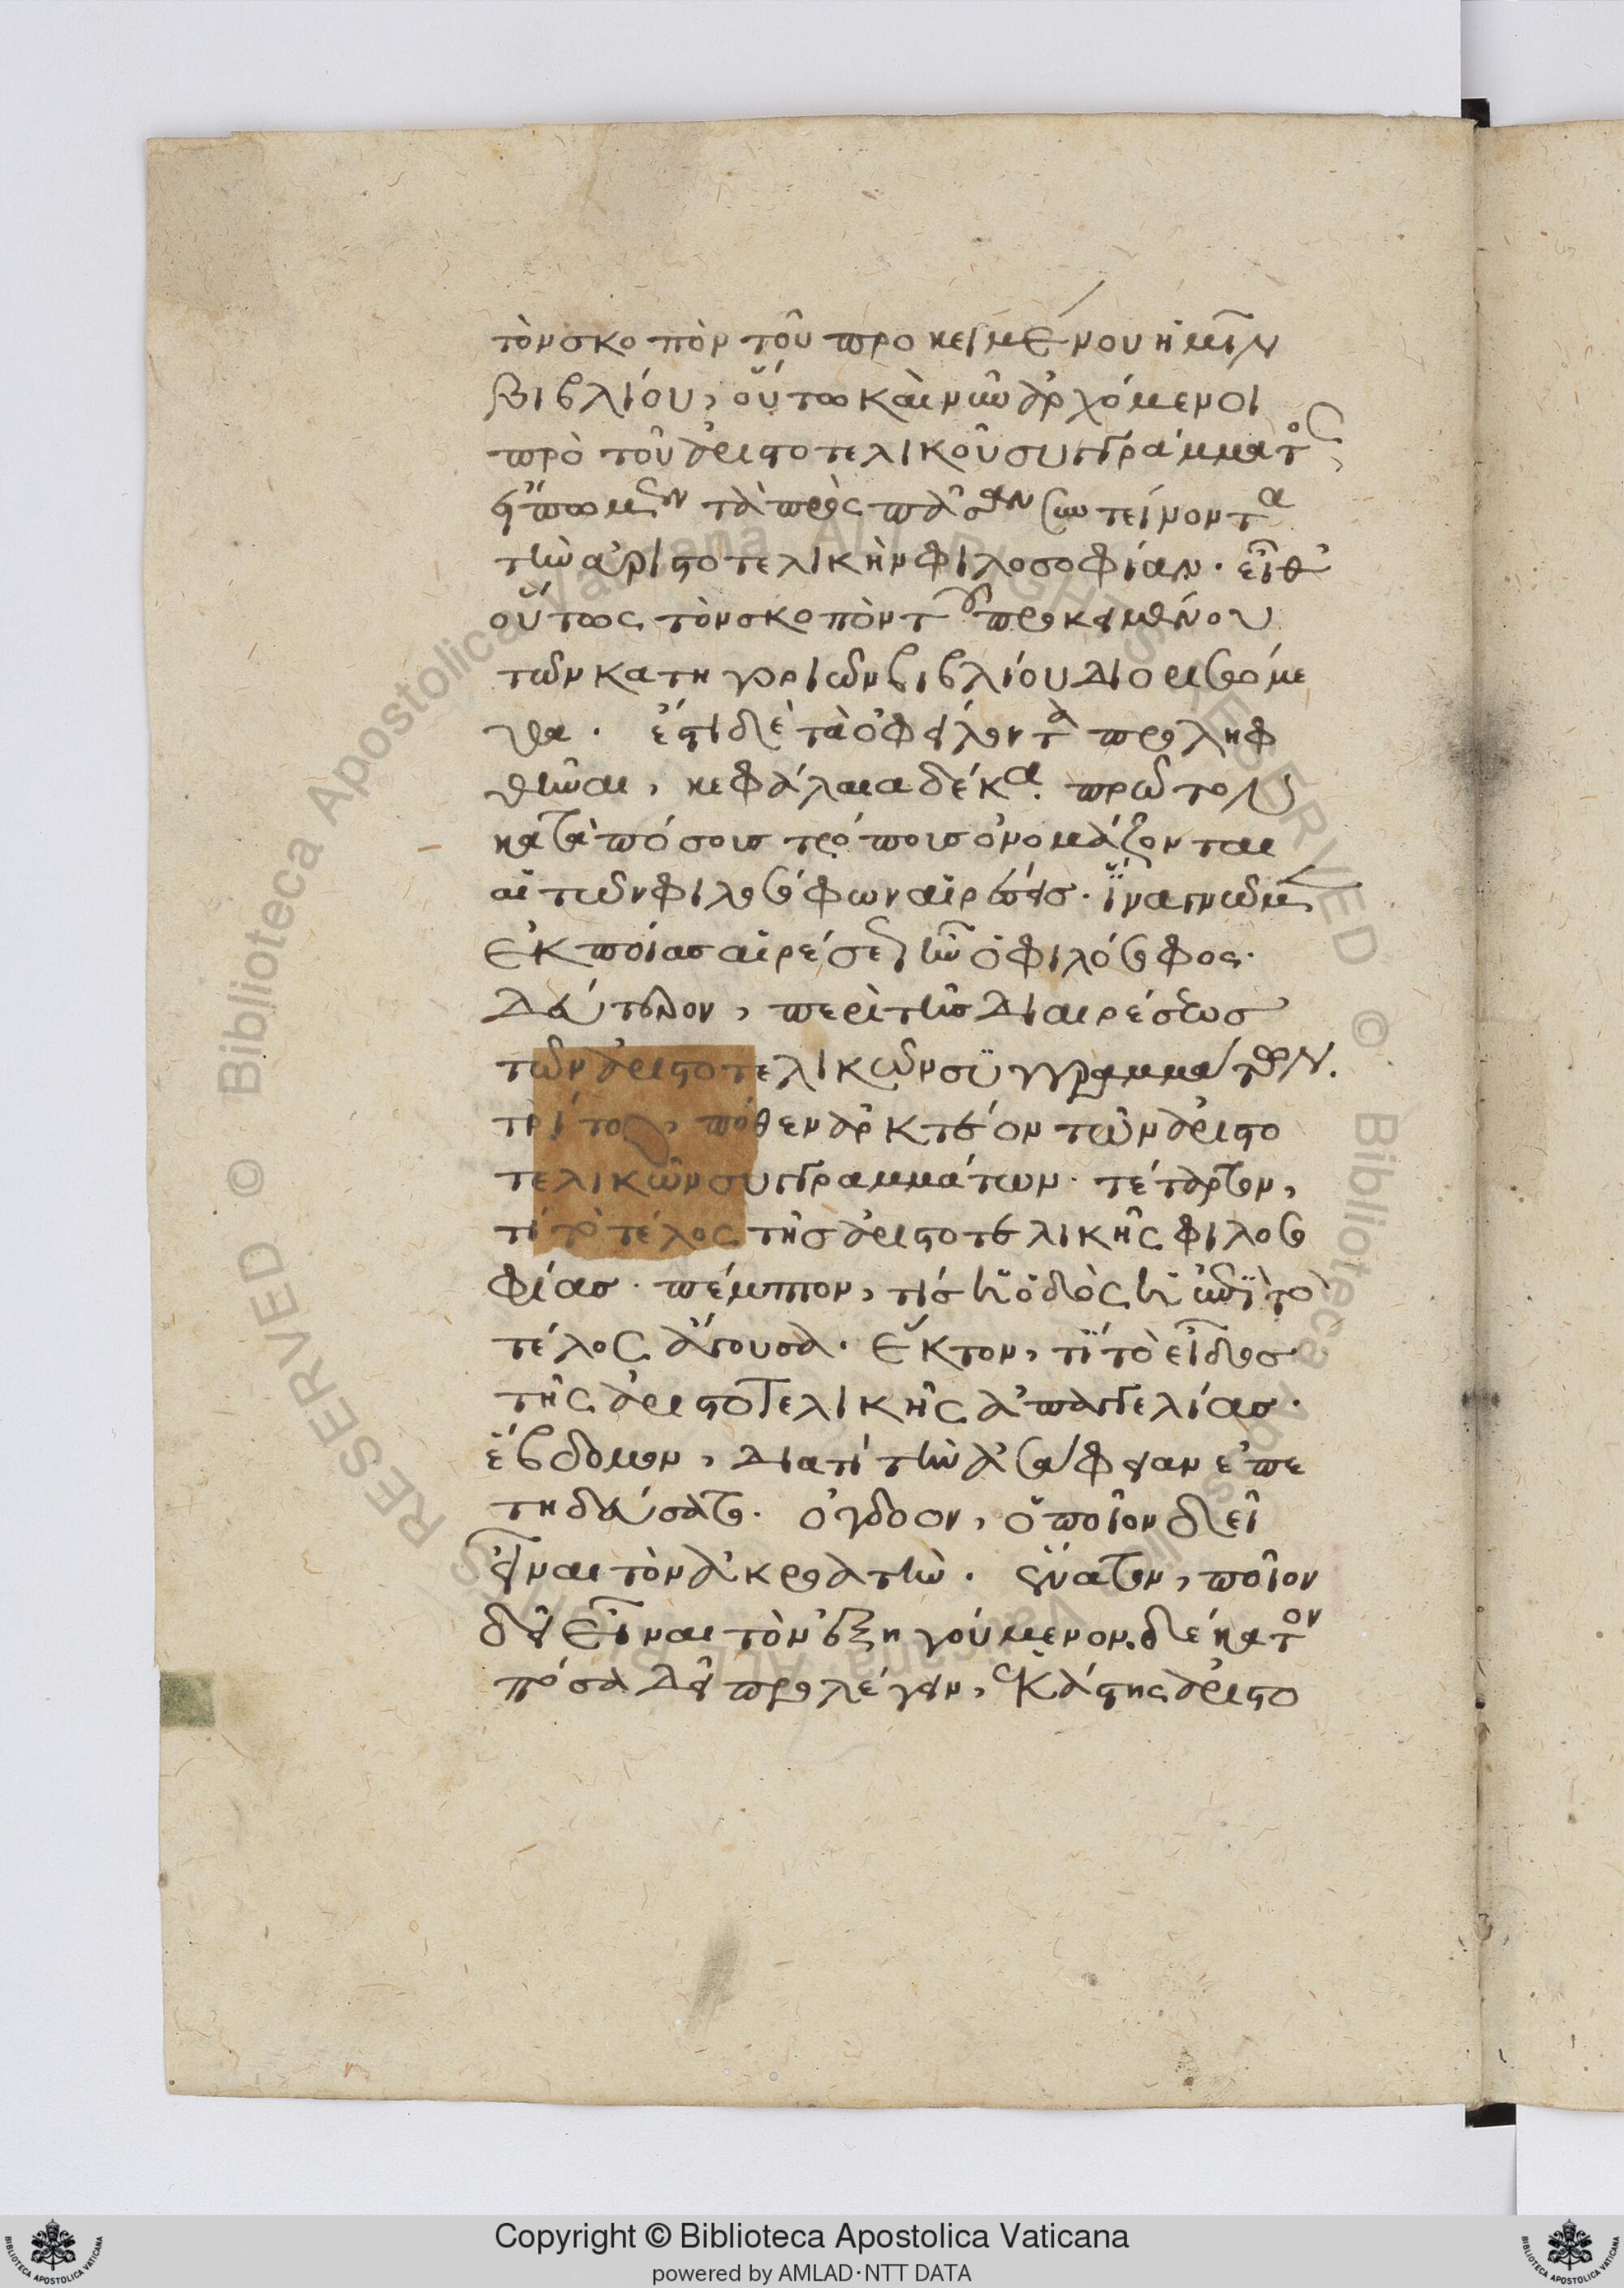 τὸν σκοπὸν τοῦ προκειμένου ἡμῖν
βιβλίου, οὕτω καὶ νῦν ἀρχόμενοι
πρὸ τοῦ ἀριστοτελικοῦ συγγράμματος,
εἴπωμεν τὰ πρὸς πᾶσαν συντείνοντα
τὴν ἀριστοτελικὴν φιλοσοφίαν. εἶθ'
οὕτως τὸν σκοπὸν τοῦ προκειμένου
τῶν κατηγοριῶν βιβλίου διορισόμε
θα. ἔστι δὲ τὰ ὀφείλοντα προληφ
θῆναι, κεφάλαια δέκα. πρῶτον
κατὰ πόσους τρόπους ὀνομάζονται
αἱ τῶν φιλοσόφων αἱρέσεις. ἵνα γνῶμεν
ἐκ ποίας αἱρέσεως ἦν ὁ φιλόσοφος.
δεύτερον, περὶ τῆς διαιρέσεως
τῶν ἀριστοτελικῶν συγγραμμάτων.
τρίτον, πόθεν ἀρκτέον τῶν ἀριστο
τελικῶν συγγραμμάτων. τέταρτον,
τί τὸ τέλος τῆς ἀριστοτελικῆς φιλοσο
φίας. πέμπτον, τίς ἡ ὁδὸς ἡ ἐπὶ τὸ
τέλος ἄγουσα. ἕκτον, τί τὸ εἶδος
τῆς ἀριστοτελικῆς ἀπαγγελίας.
ἕβδομον, διατί τὴν ἀσάφειαν ἐπε
τηδεύσατο. ὄγδοον, ὁποῖον δεῖ
εἶναι τὸν ἀκροατὴν. ἔνατον, ποῖον
δεῖ εἶναι τὸν ἐξηγούμενον. δέκατον
πόσα δεῖ προλέγειν, ἑκάστης ἀριστο
Copyright © Biblioteca Apostolica Vaticana
powered by AMLAD·NTT DATA